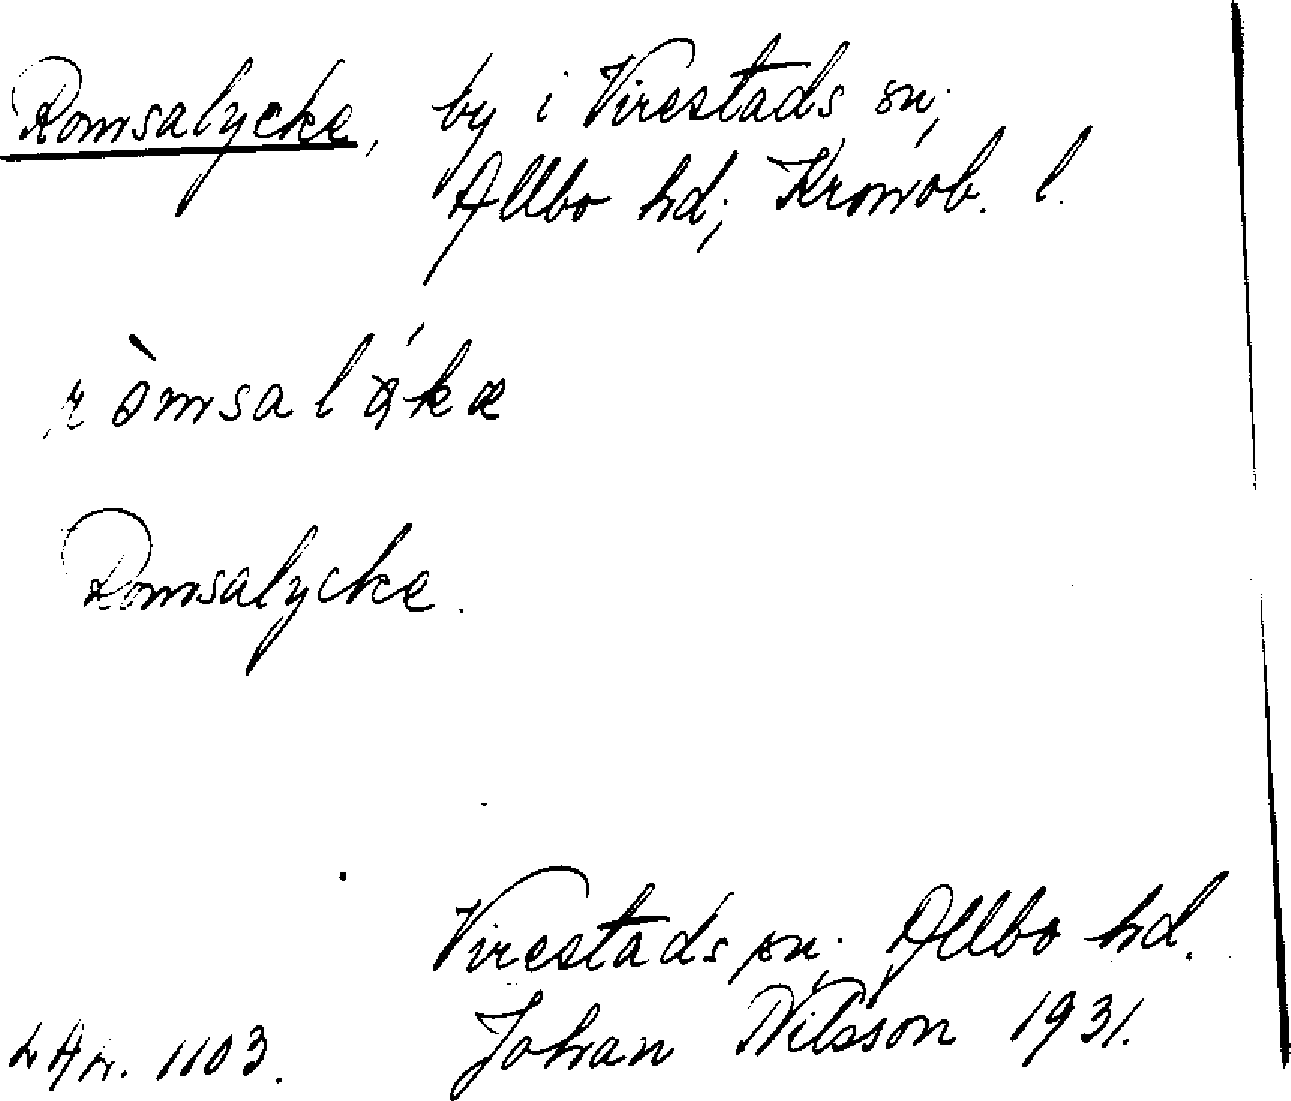 Romsalycke, by i Virestads sn;
Allbo hd; Kronob. l.
Romsalycke.
Virestads sn; Allbo hd.
1103. Johan Nilsson 1931.